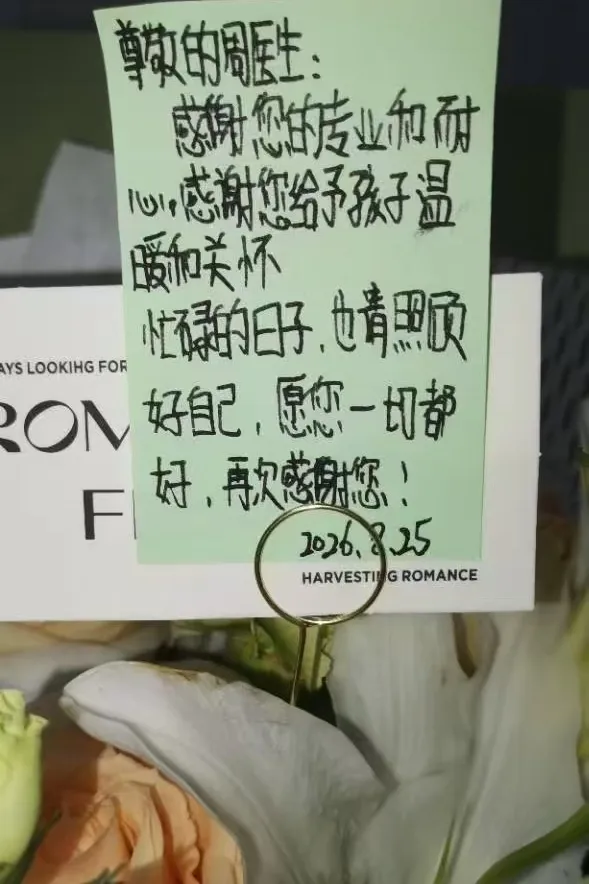 尊敬的周医生：
感谢您的专业和耐
心，感谢您给予孩子温
暖和关怀
忙碌的日子，也请照顾
好自己，愿您一切都
好，再次感谢您！
2026.8.25
AYS LOOKIHG FOR
ROM
F
HARVESTING ROMANCE